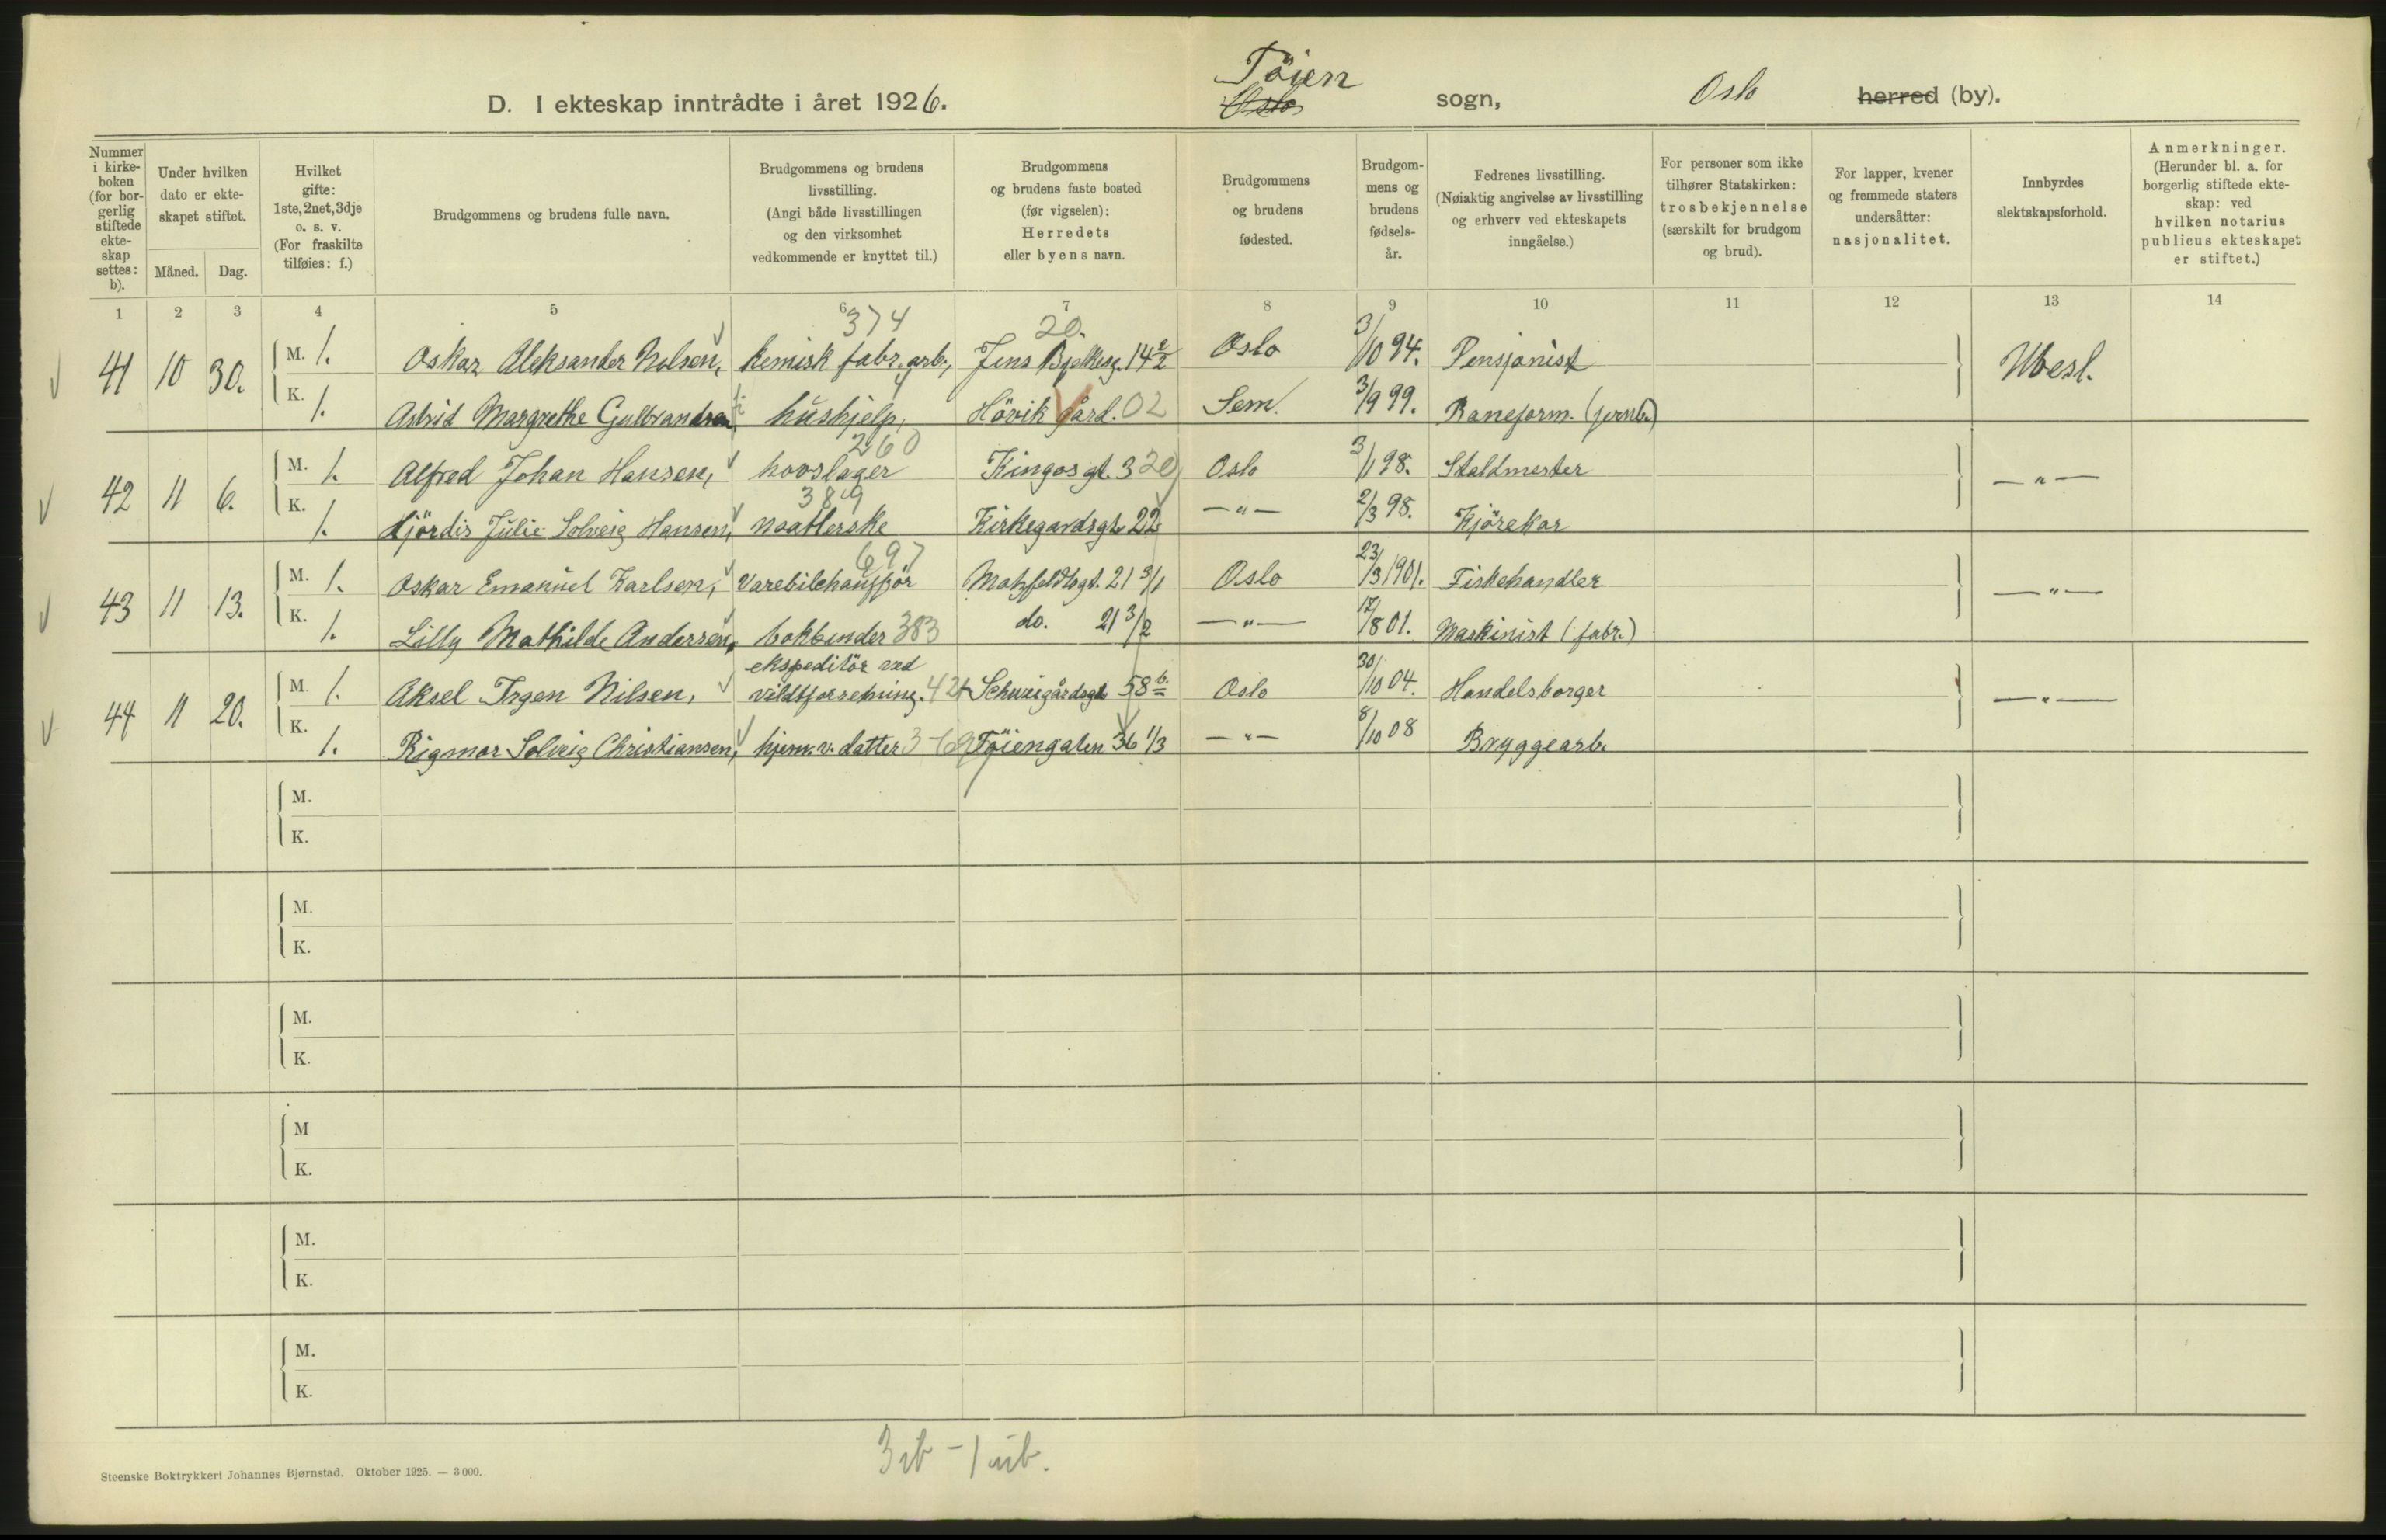 D. I ekteskap inntrådte i året 1926.
Töien
Oslo sogn, Oslo herred (by).
Nummer i kirkeboken (for borgerlig stiftede ekteskap settes: b).
Under hvilken dato er ekteskapet stiftet.
Måned. Dag.
Hvilket gifte: 1ste, 2net, 3dje o. s. v. (For fraskilte tilføies: f.)
Brudgommens og brudens fulle navn.
Brudgommens og brudens livsstilling. (Angi både livsstillingen og den virksomhet vedkommende er knyttet til.)
Brudgommens og brudens faste bosted (før vigselen): Herredets eller byens navn.
Brudgommens og brudens fødested.
Brudgommens og brudens fødselsår.
Fedrenes livsstilling. (Nøiaktig angivelse av livsstilling og erhverv ved ekteskapets inngåelse.)
For personer som ikke tilhører Statskirken: trosbekjennelse (særskilt for brudgom og brud).
For lapper, kvener og fremmede staters undersåtter: nasjonalitet.
Innbyrdes slektskapsforhold.
Anmerkninger. (Herunder bl. a. for borgerlig stiftede ekteskap: ved hvilken notarius publicus ekteskapet er stiftet.)
1 2 3 4 5 6 7 8 9 10 11 12 13 14
374 20.
41 10 30. M. 1. Oskar Aleksander Nilsen, kemisk fabr. arb., Jens Bjelkesg. 14 2/2 Oslo 3/10 94. Pensjonist Ubesl.
K. 1. Astrid Margrethe Gulbrandsen, hushjelp, Hövik gård. 02 Sem. 3/9 99. Baneform. (jernb.)
260
42 11 6. M. 1. Alfred Johan Hansen, hovslager Kingosgt. 3 20 Oslo 3/1 98. Staldmester — " —
389
K. 1. Hjördis Julie Solveig Hansen, naatlerske Kirkegardsgt. 22 — " — 2/3 98. Kjörekar
697
43 11 13. M. 1. Oskar Emanuel Karlsen, Varebilchaufför Motzfeldtsgt. 21 3/1 Oslo 23/3 1901. Fiskehandler — " —
K. 1. Lilly Mathilde Andersen, bokbinder 383 do. 21 3/2 — " — 17/8 01. Maskinist (fabr.)
ekspeditör ved
44 11 20. M. 1. Aksel Irgen Nilsen, vildtforretning. 424 Schweigårdsgt 58 b. Oslo 30/10 04. Handelsborger — " —
K. 1. Rigmor Solveig Christiansen, hjemv. datter Töiengaten 36 1/3 — " — 8/10 08 Bryggearb.
M.
K.
M.
K.
M.
K.
M
K.
M.
K.
M.
K.
3 ib - 1 uib.
Steenske Boktrykkeri Johannes Bjørnstad. Oktober 1925. — 3 000.